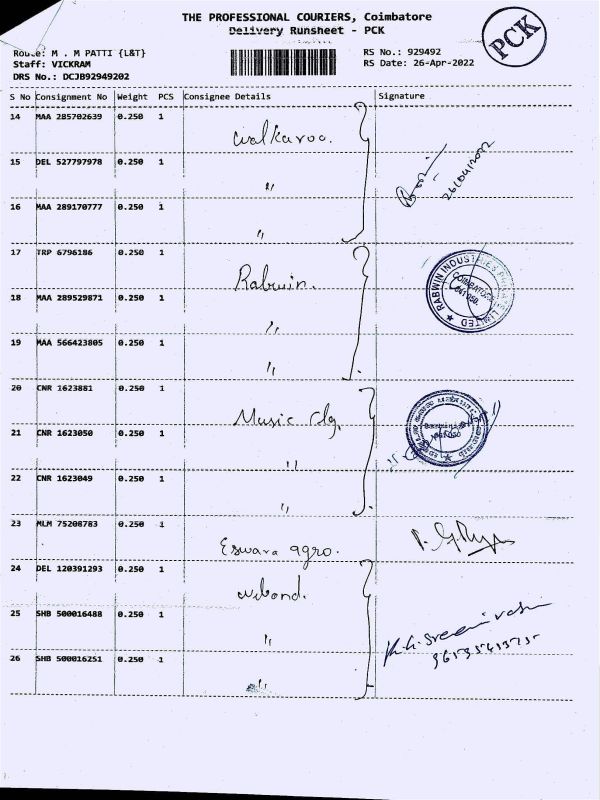 THE PROFESSIONAL COURIERS, Coimbatore
Delivery Runsheet - PCK
PCK
Route: M . M PATTI {L&T}
RS No.: 929492
Staff: VICKRAM
RS Date: 26-Apr-2022
DRS No.: DCJB92949202
S No Consignment No Weight PCS Consignee Details Signature
14 MAA 285702639 0.250 1 Walkaroo.
15 DEL 527797978 0.250 1 〃
26/04/2022
16 MAA 289170777 0.250 1 〃
17 TRP 6796186 0.250 1 Rabwin.
RABWIN INDUSTRIES PRIVATE LIMITED
COIMBATORE
641 050.
18 MAA 289529871 0.250 1 〃
19 MAA 566423805 0.250 1 〃
20 CNR 1623881 0.250 1 Music clg.
21 CNR 1623050 0.250 1 〃
22 CNR 1623049 0.250 1 〃
23 MLM 75208783 0.250 1 Eswara agro.
24 DEL 120391293 0.250 1
25 SHB 500016488 0.250 1 〃
26 SHB 500016251 0.250 1 〃